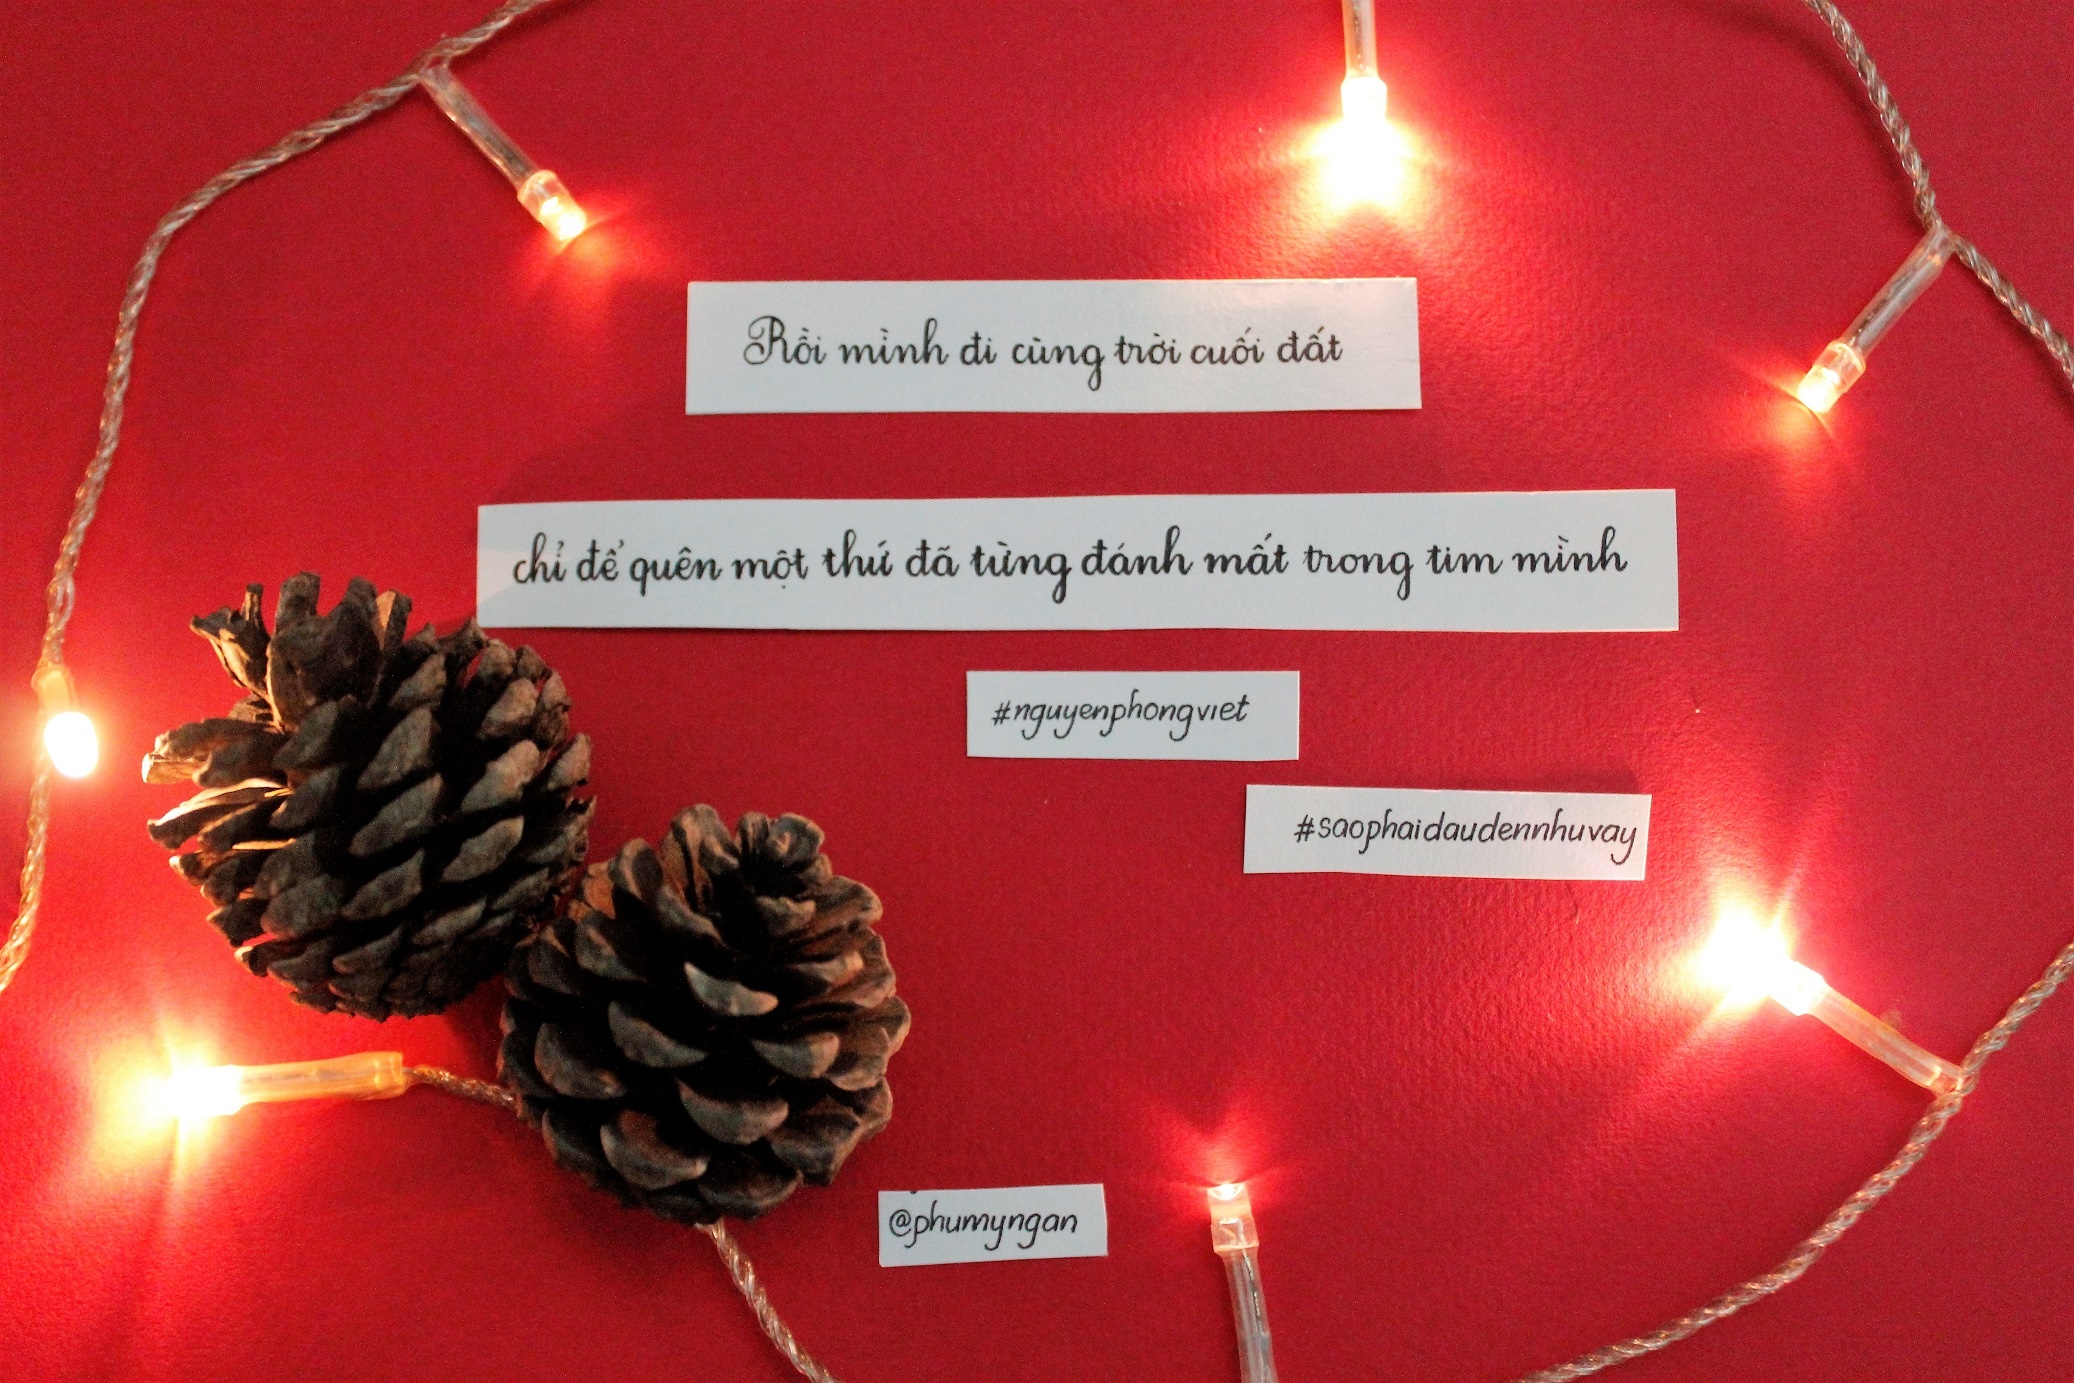 Rồi mình đi cùng trời cuối đất
chỉ để quên một thứ đã từng đánh mất trong tim mình
#nguyenphongviet
#saophaidaudennhuvay
@phumyngan